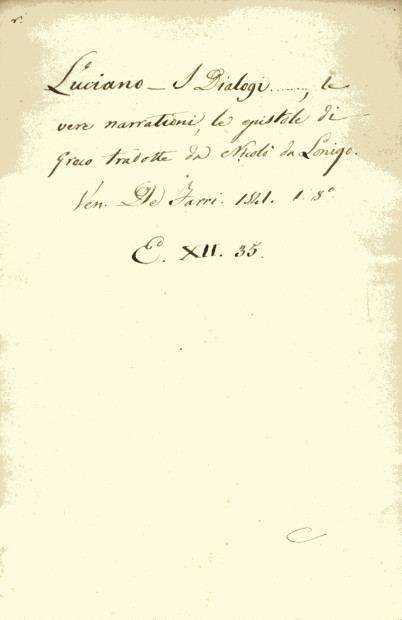 Luciano – I Dialogi ........, le
vere narrationi, le epistole di
Greco tradotte da Nicolò da Lonigo.
Ven. De Farri. 1541. 1. 8°
E. XII. 35.
C